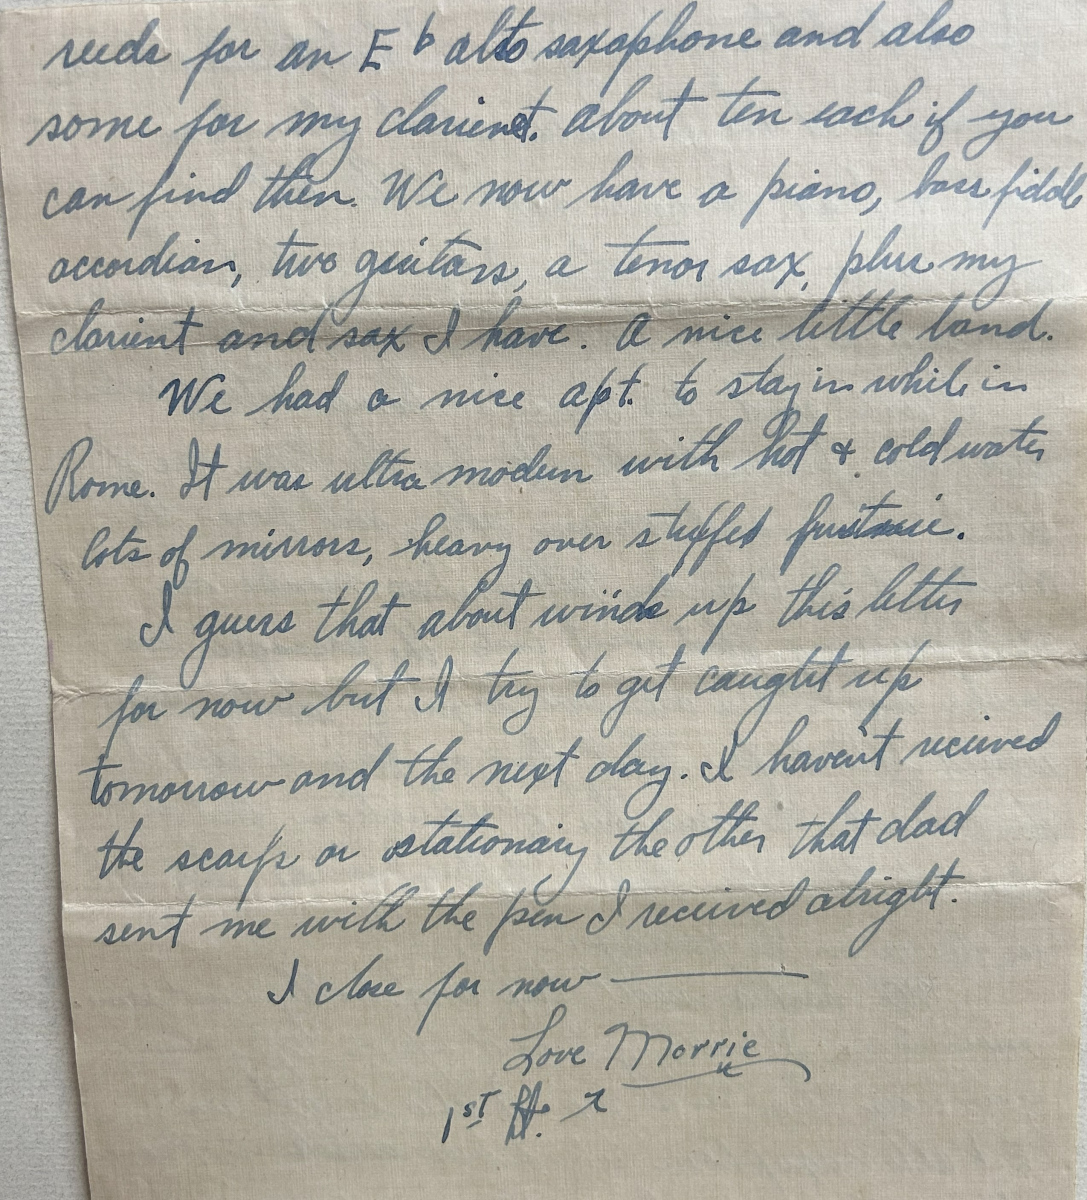 reeds for an E b alto saxaphone and also
some for my clarienet. about ten each if you
can find then. We now have a piano, bass fiddle
accordian, two guitars, a tenor sax, plus my
clarient and sax I have. A nice little band.
We had a nice apt. to stay in while in
Rome. It was ultra modern with hot & cold water
lots of mirrors, heavy over stuffed
I guess that about winds up this letter
for now but I try to get caught up
tomorrow and the next day. I haven't received
the scarfs or stationary the other that dad
sent me with the pen I received alright.
I close for now
Love Morrie
1st Lt.